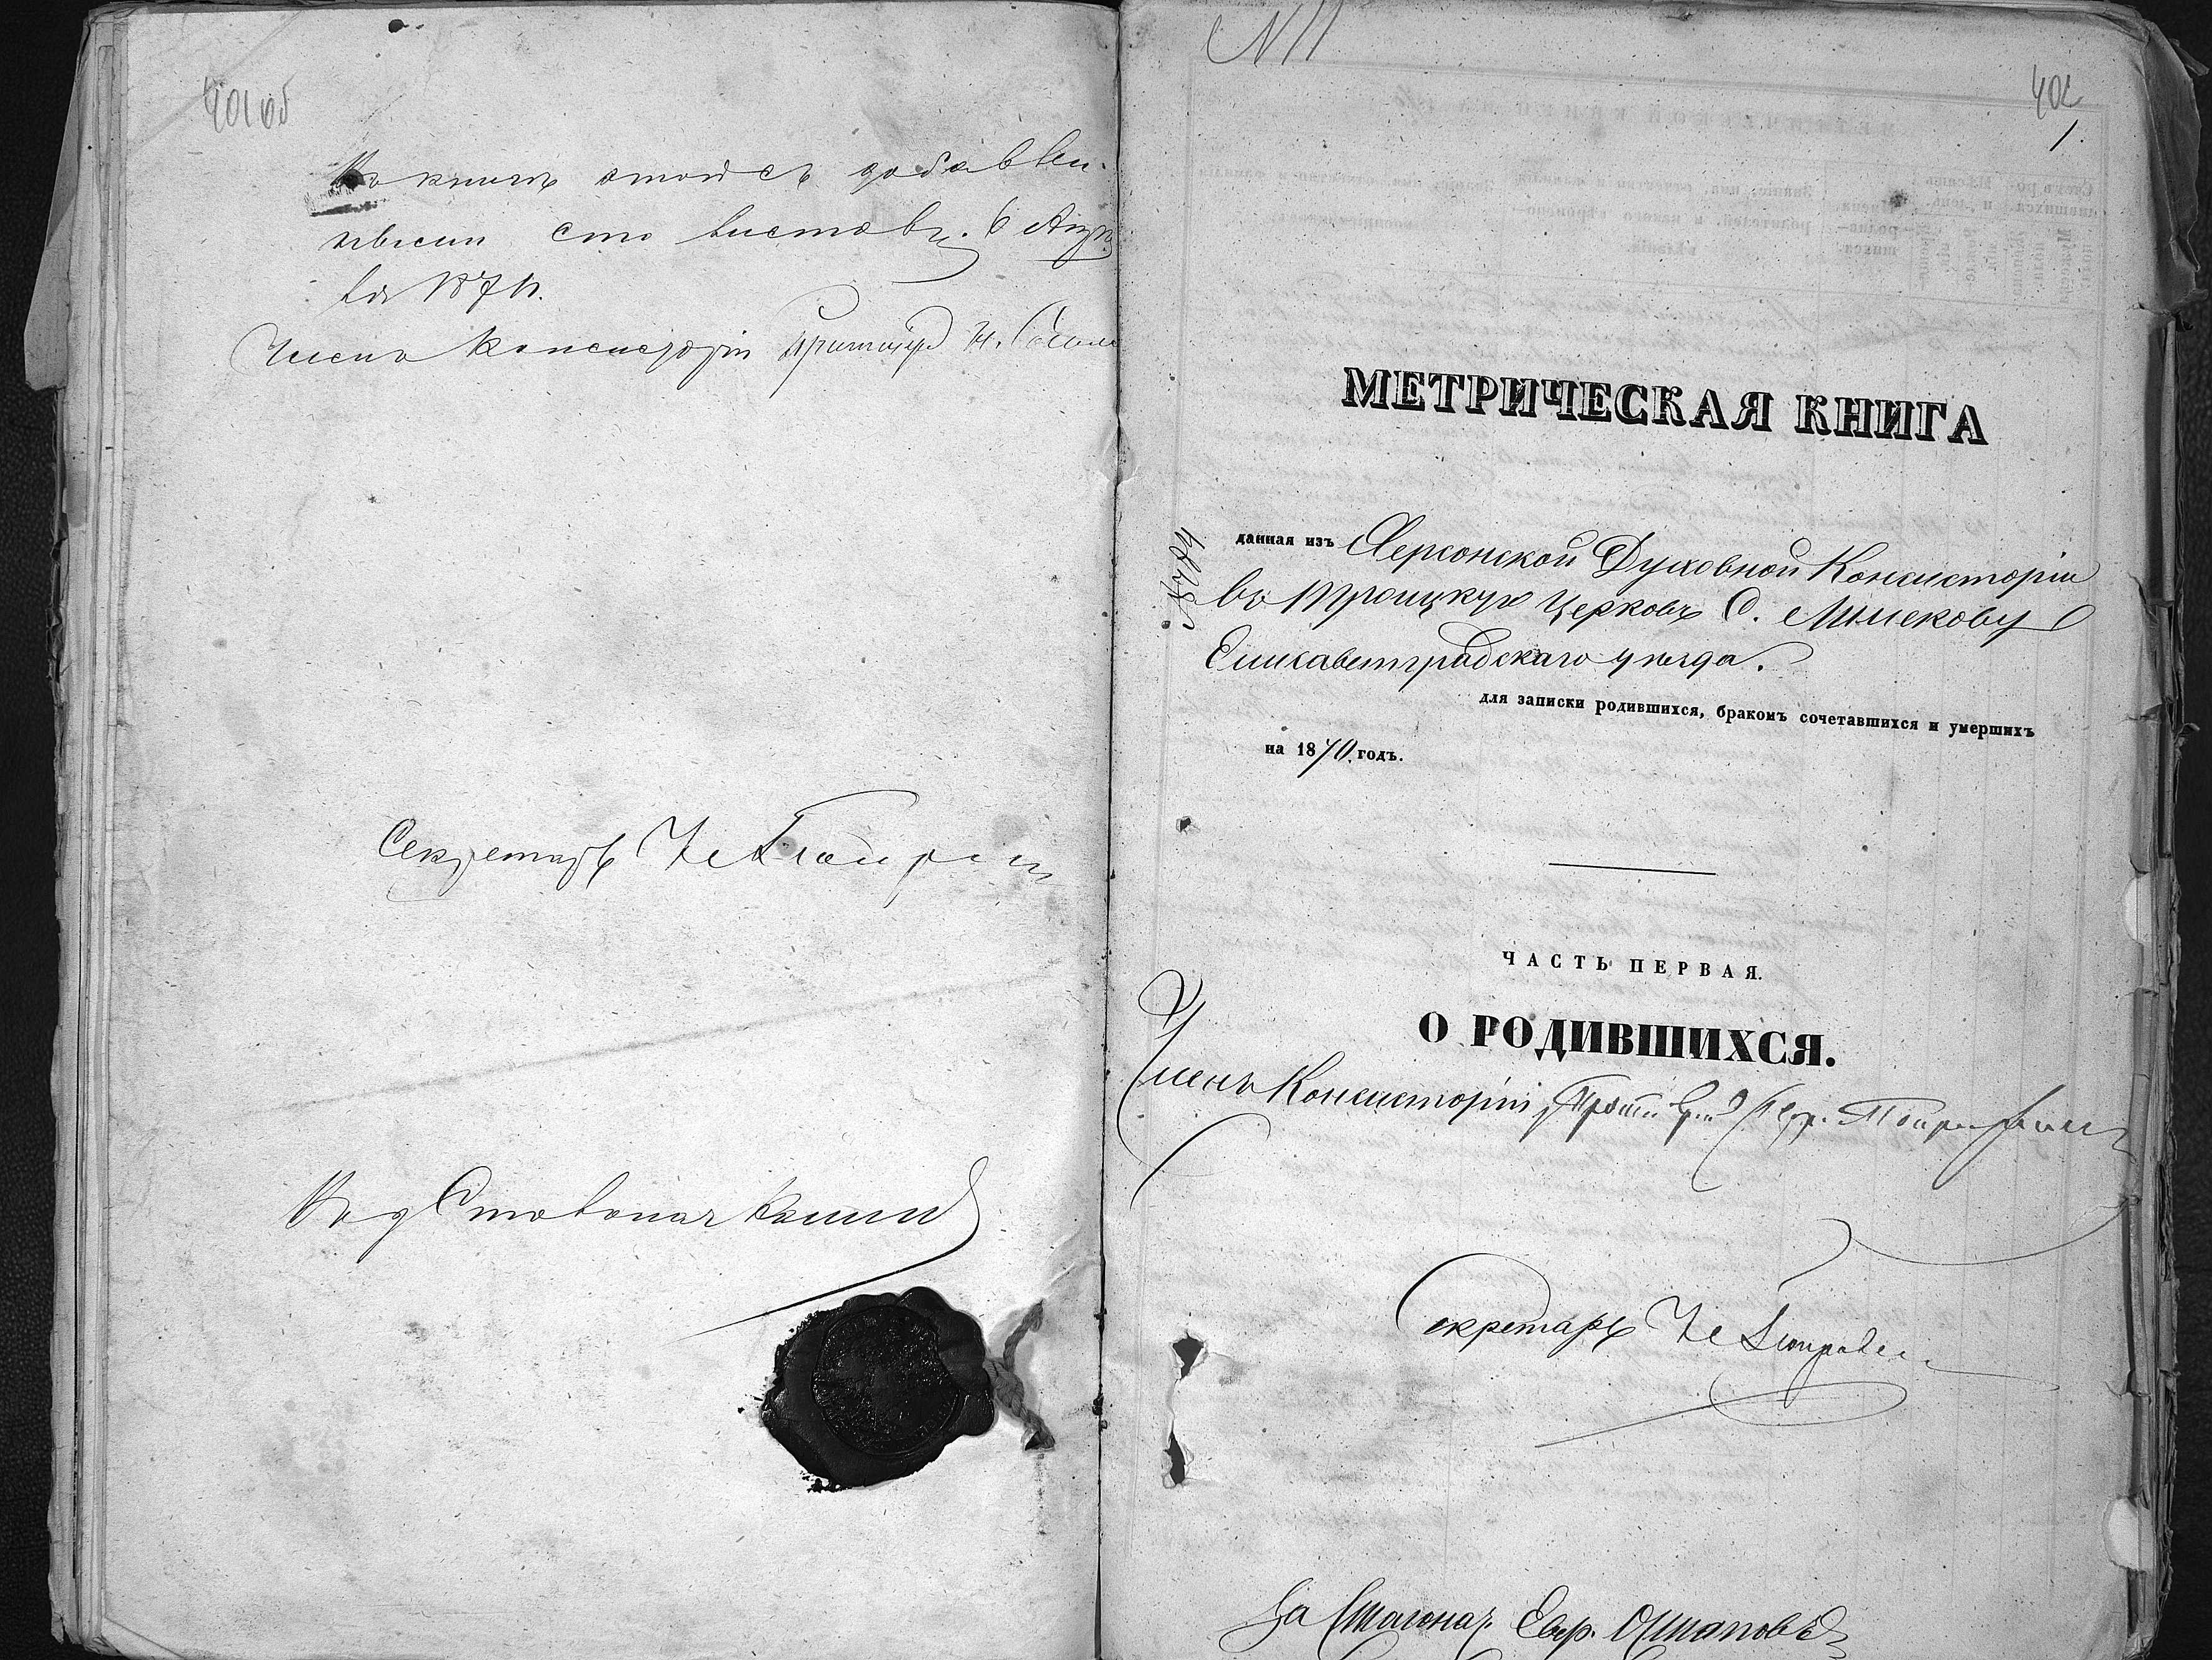 401 об
Въ книгѣ этой съ добавлен-
ными сто листовъ. 6 Апрѣ
ля 187
Членъ Консисторіи Протоіерей Н.
Секретарь
Столоначальникъ
N 11
402
1.
МЕТРИЧЕСКАЯ КНИГА
данная изъ Херсонской Духовной Консисторіи
въ Троицкую церковь С.
Елисаветградскаго уѣзда.
для записки родившихся, бракомъ сочетавшихся и умершихъ
на 1870. годъ.
ЧАСТЬ ПЕРВАЯ.
О РОДИВШИХСЯ.
Членъ Консисторіи, Протоіерей
Секретарь
За Столонач. Евр. Остаповъ